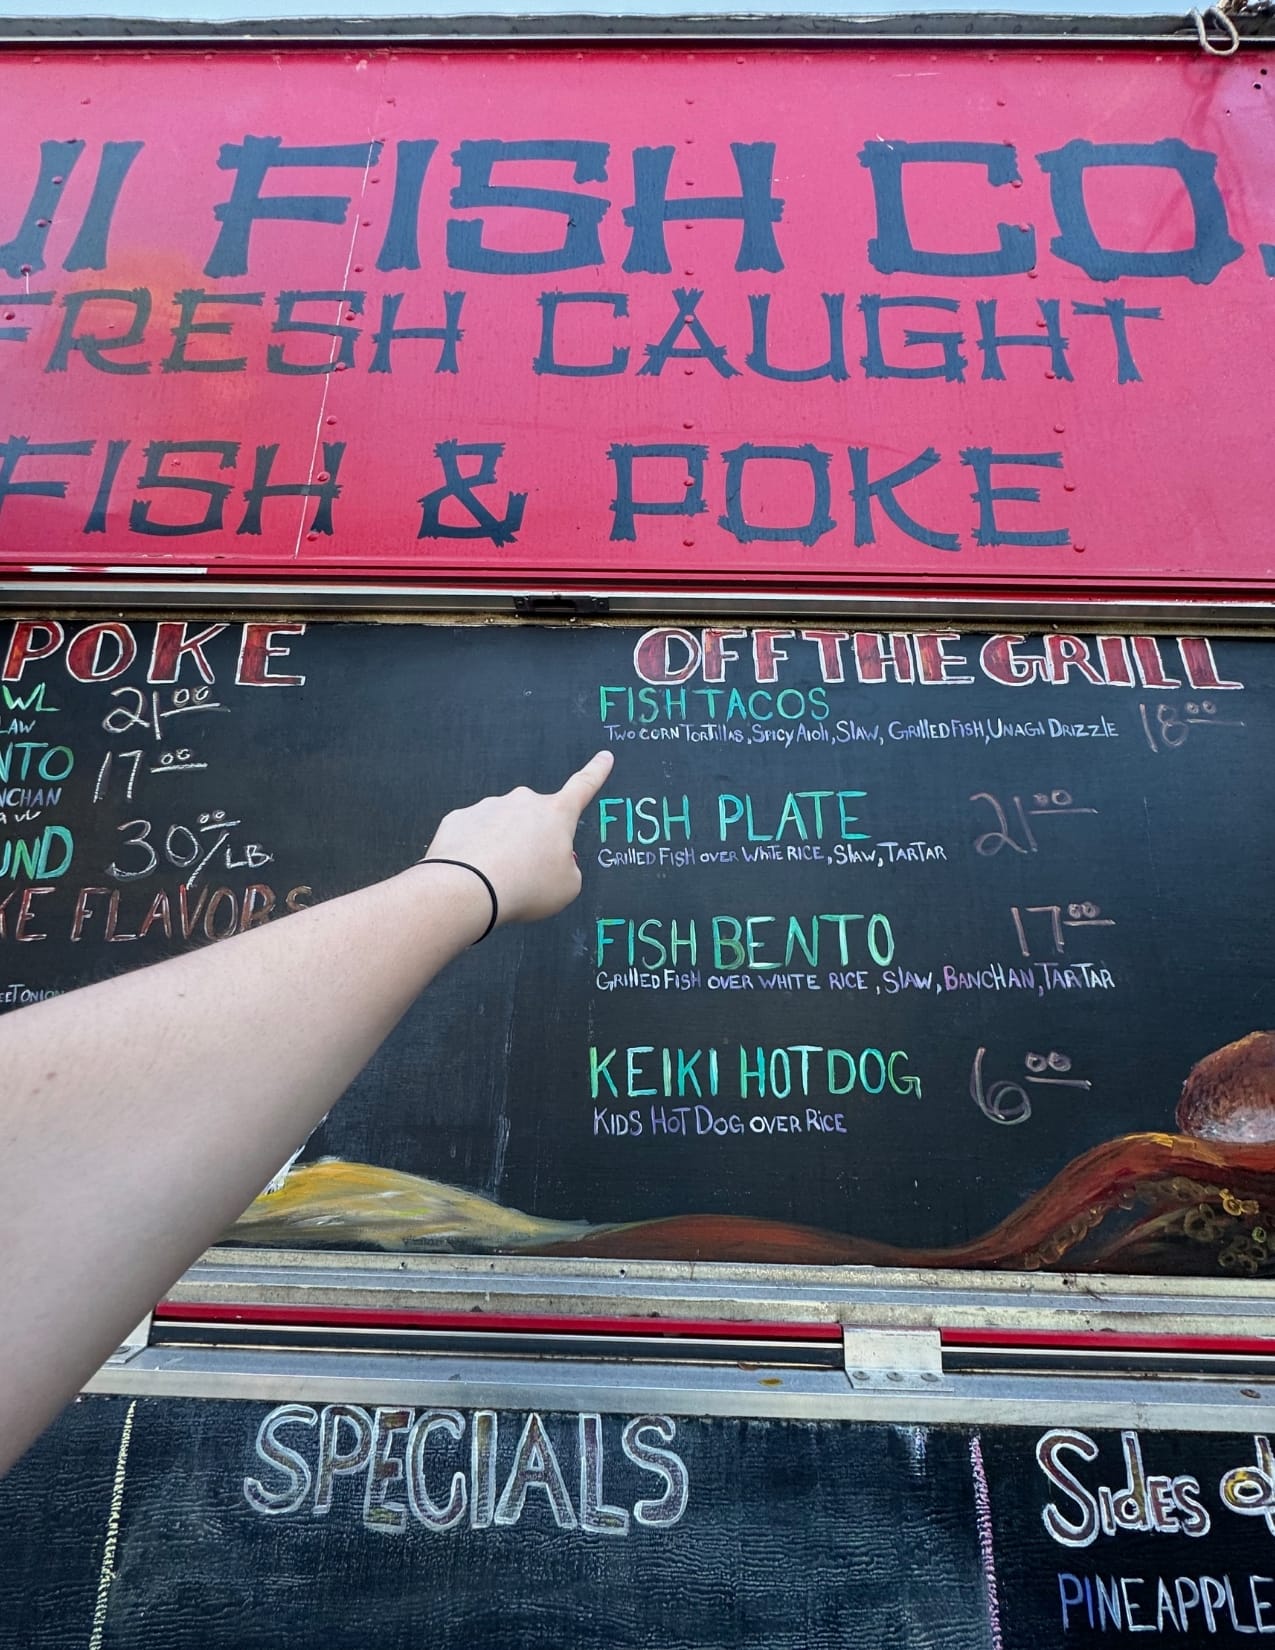 FISH CO.
FRESH CAUGHT
FISH & POKE
POKE
21.00
17.00
30.00/LB
FLAVORS
OFF THE GRILL
FISH TACOS 18.00
TWO CORN TORTILLAS, SPICY AIOLI, SLAW, GRILLED FISH, UNAGI DRIZZLE
FISH PLATE 21.00
GRILLED FISH OVER WHITE RICE, SLAW, TARTAR
FISH BENTO 17.00
GRILLED FISH OVER WHITE RICE, SLAW, BANCHAN, TARTAR
KEIKI HOT DOG 6.00
KIDS HOT DOG OVER RICE
SPECIALS
SIDES
PINEAPPLE